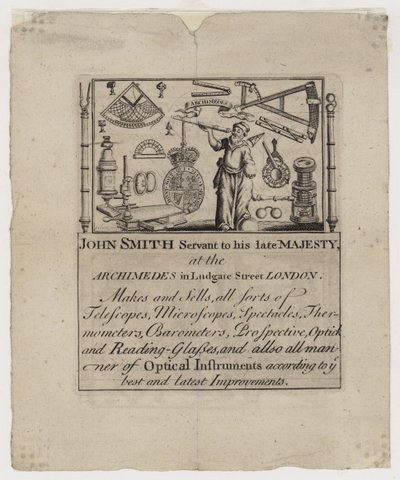 ARCHIMEDES
JOHN SMITH Servant to his late MAJESTY,
at the
ARCHIMEDES in Ludgate Street LONDON.
Makes and Sells, all sorts of
Telescopes, Microscopes, Spectacles, Ther-
mometers, Barometers, Prospective, Optick
and Reading-Glaſses, and allso all man-
ner of Optical Inſtruments according to ỹ
best and latest Improvements.